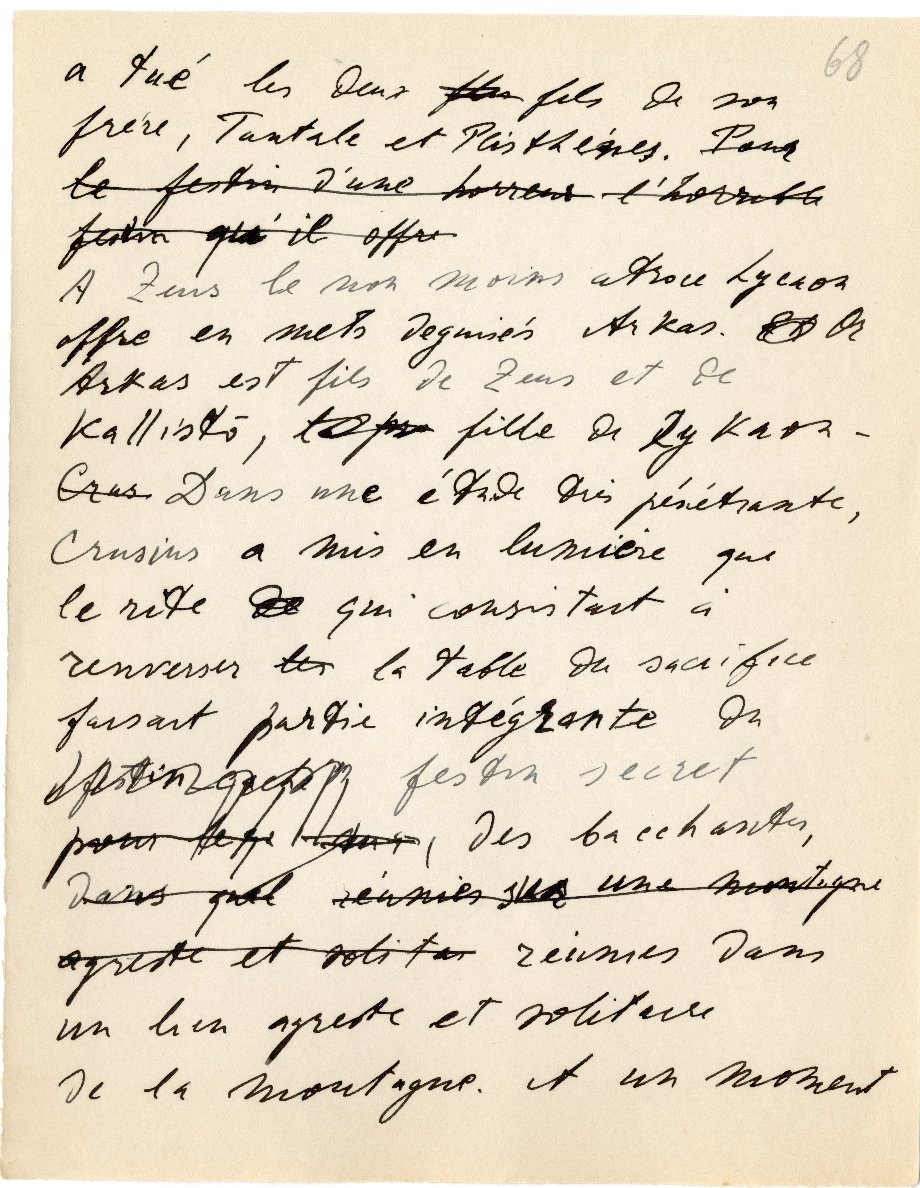 68
a tué les deux fils fils de son
frère, Tantale et Plisthènes. Pour
le festin d'une horreur l'horrible
festin qu'il offre
A Zeus le non moins atroce Lycaon
offre en mets deguisés Arkas. Et Or
Arkas est fils de Zeus et de
Kallistō, fille de Lykaon -
Crus Dans une étude très pénétrante,
Crusius a mis en lumière que
le rite de qui consistait à
renverser les la table du sacrifice
faisait partie intégrante du
festin secret
pour, des bacchantes,
dans quel réunies sur une montagne
agreste et solitai réunies dans
un lieu agreste et solitaire
de la montagne. A un moment